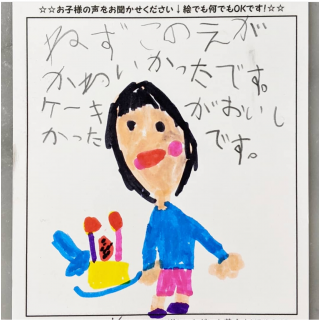 ☆☆お子様の声をお聞かせください↓絵でも何でもOKです!☆☆
ねずこのえが
かわいかったです。
ケーキ がおいし
かった です。